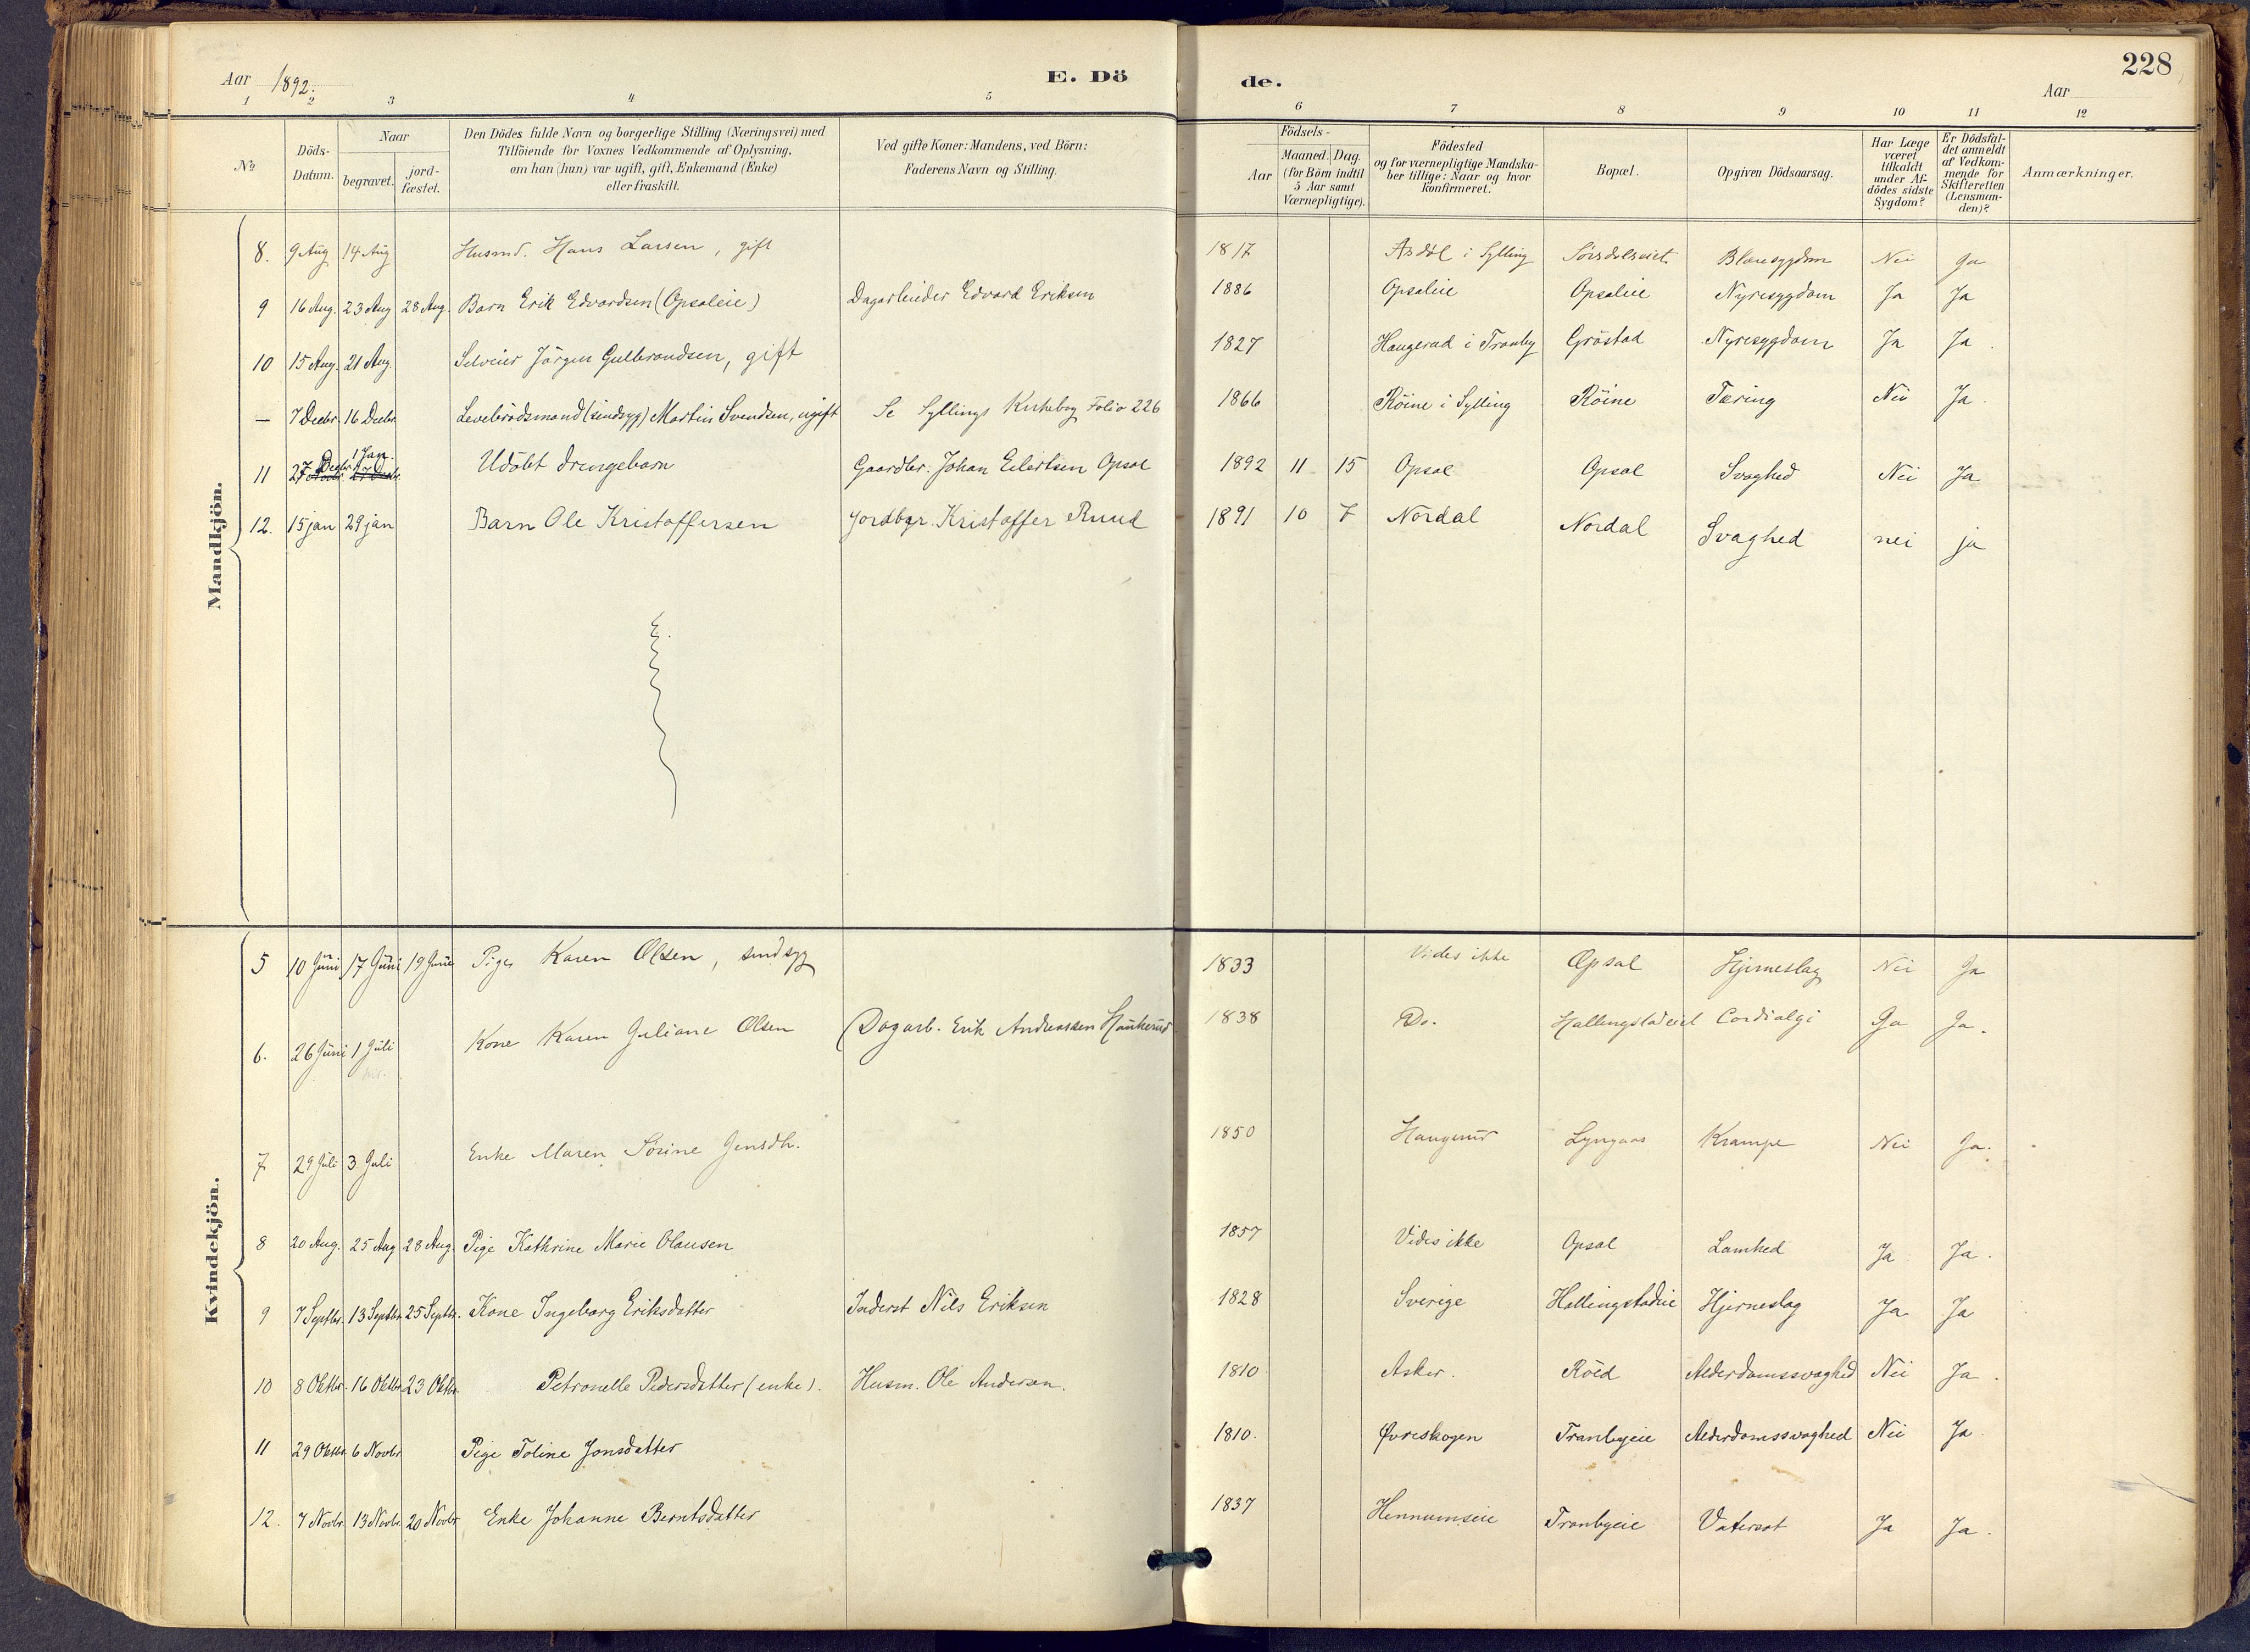 228
Aar 1892. E. Dö de. Aar
1 2 3 4 5 6 7 8 9 10 11 12
No
Döds-
Datum.
Naar
begravet.
jord-
fæstet.
Den Dödes fulde Navn og borgerlige Stilling (Næringsvei) med
Tilföiende for Voxnes Vedkommende af Oplysning,
om han (hun) var ugift, gift, Enkemand (Enke)
eller fraskilt.
Ved gifte Koner: Mandens, ved Börn:
Faderens Navn og Stilling.
Födsels-
Aar
Maaned. Dag.
(for Börn indtil
5 Aar samt
Værnepligtige).
Födested
og for værnepligtige Mandska-
ber tillige: Naar og hvor
konfirmeret.
Bopæl.
Opgiven Dödsaarsag.
Har Læge
været
tilkaldt
under Af-
dödes sidste
Sygdom?
Er Dödsfal-
det anmeldt
af Vedkom-
mende for
Skifteretten
(Lensman-
den)?
Anmærkninger.
Mandkjön.
8. 9 Aug 14 Aug Husmd. Hans Larsen, gift 1817 Asdøl i Sylling Blæresygdom Nei Ja
9 16 Aug. 23 Aug 28 Aug. Barn Erik Edvardsen (Opsaleie) Dagarbeider Edvard Eriksen 1886 Opsaleie Opsaleie Nyresygdom Ja Ja
10 15 Aug. 21 Aug. Selveier Jörgen Gulbrandsen, gift 1827 Haugerud i Tranby Gröstad Nyresygdom Ja Ja.
— 7 Decbr. 16 Decbr. Levebrödsmand (sindsyg) Martin Svendsen, ugift Se Syllings Kirkebog Folio 226 1866 Röine i Sylling Röine Tæring Nei Ja.
11 27 Decbr. 1 Jan. Udöbt drengebarn Gaardbr. Johan Eilertsen Opsal 1892 11 15 Opsal Opsal Svaghed Nei Ja
12. 15 jan 29 jan Barn Ole Kristoffersen Jordbgr. Kristoffer Ruud 1891 10 7 Nordal Nordal Svaghed nei ja
Kvindekjön.
5 10 Juni 17 Juni 19 Juni Pige Karen Olsen, sindsyg 1833 Vides ikke Opsal Hjerneslag Nei Ja
6. 26 Juni 1 Juli Kone Karen Juliane Olsen (Dagarb. Erik Andreassen Haukerud 1838 Do. Hallingstadeiet Cordialgi Ja Ja.
7 29 Juli 3 Juli Enke Maren Sörine Jensdtr. 1850 Haugerud Lyngaas Krampe Nei Ja.
8 20 Aug. 25 Aug 28 Aug. Pige Kathrine Marie Olausen 1857 Vides ikke Opsal Lamhed Ja Ja.
9 7 Septbr. 13 Septbr. 25 Septbr. Kone Ingeborg Eriksdatter Inderst Nils Eriksen 1828 Sverige Hallingstadeie Hjerneslag Ja Ja
10 8 Oktbr. 16 Oktbr. 23 Oktbr. Petronelle Pedersdatter (enke). Husm. Ole Andersen. 1810 Asker. Röed Alderdomssvaghed Nei Ja.
11 29 Oktbr. 6 Novbr. Pige Toline Jonsdatter 1810. Øvreskogen Tranbyeie Alderdomssvaghed Nei Ja
12. 7 Novbr. 13 Novbr. 20 Novbr Enke Johanne Berntsdatter 1837 Hennumseie Tranbyeie Vatersot Ja Ja.